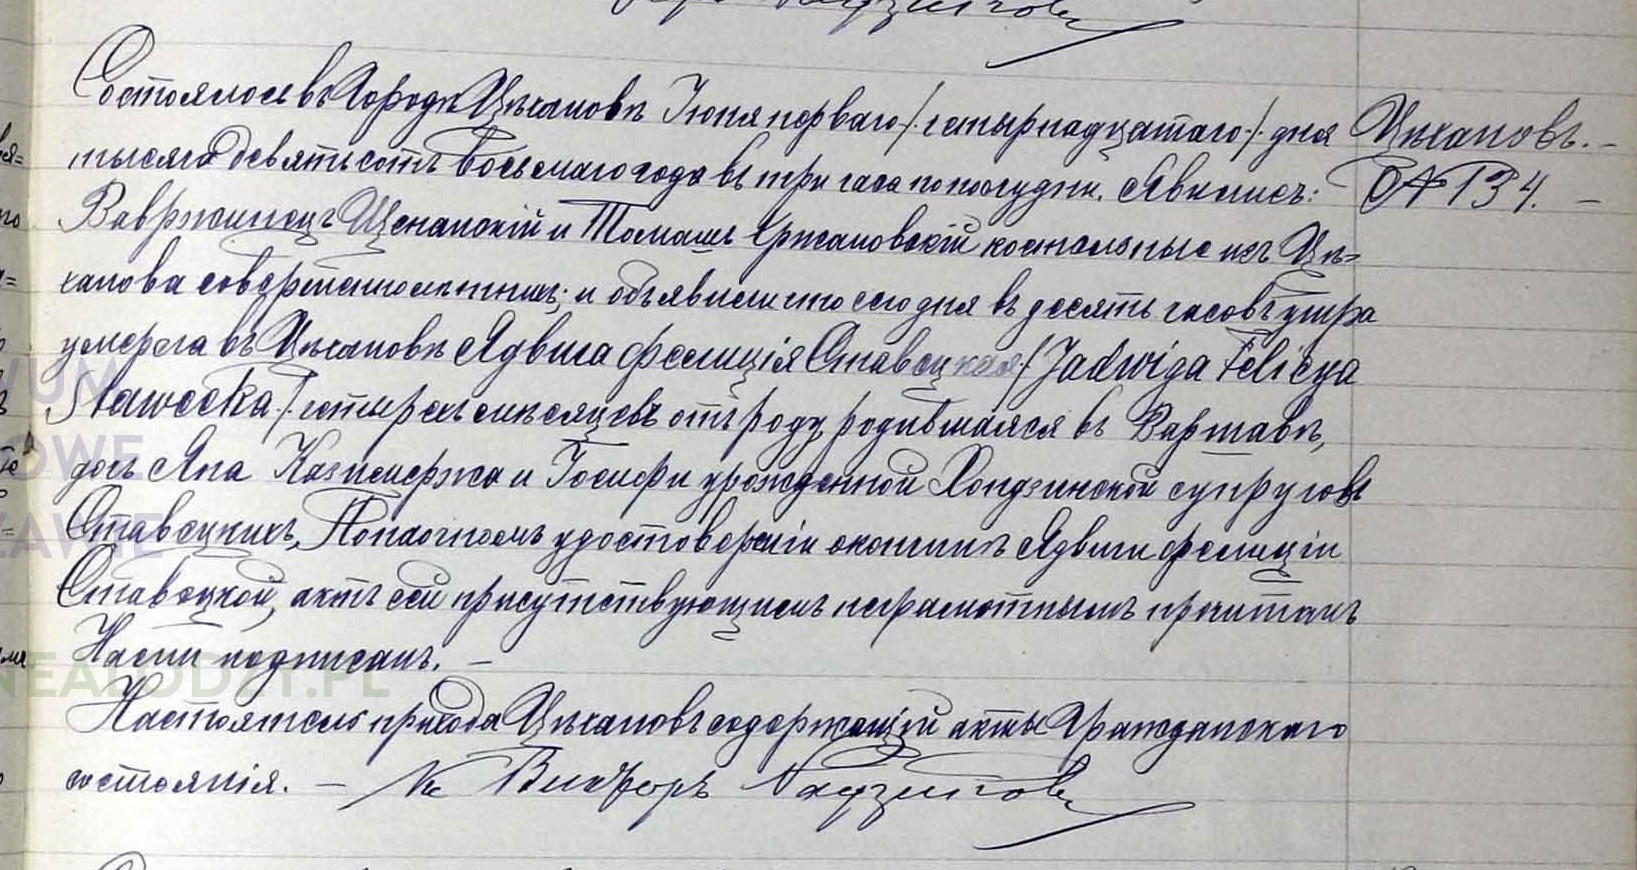 Состоялось въ Городѣ Цѣхановѣ Іюня перваго /:четырнадцатаго:/ дня
тысяча девятьсотъ восьмаго года въ три часа пополудни. Явились:
Вавржинецъ и Томашъ Кржановскій изъ Цѣ=
ханова совершеннолѣтніе; и объявили что сего дня въ десять часовъ утра
умерла въ Цѣхановѣ Ядвига Фелиція Ставецкая /:Jadwiga Felicya
Stawecka:/ четырехъ мѣсяцевъ отъ роду родившаяся въ Варшавѣ,
дочь Яна Казимержа и Іосифы урожденной супруговъ
Ставецкихъ, По наочномъ удостовереніи о кончинѣ Ядвиги Фелиціи
Ставецкой, актъ сей присутствующимъ неграмотнымъ прочитанъ
Нами подписанъ. –
Настоятель прихода Цѣхановъ содержащій акты Гражданскаго
состоянія. – Кс Викторъ
Цѣхановъ. –
№ 134. –